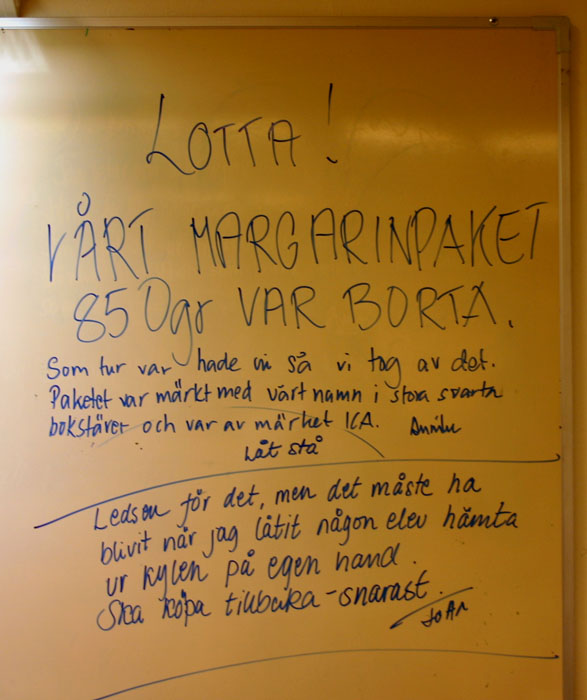 LOTTA!
VÅRT MARGARINPAKET
850gr VAR BORTA.
Som tur var hade vi så vi tog av det.
Paketet var märkt med vårt namn i stora svarta
bokstäver och var av märket ICA.
Låt stå
Ledsen för det, men det måste ha
blivit när jag låtit någon elev hämta
ur kylen på egen hand.
Ska köpa tillbaka - snarast.